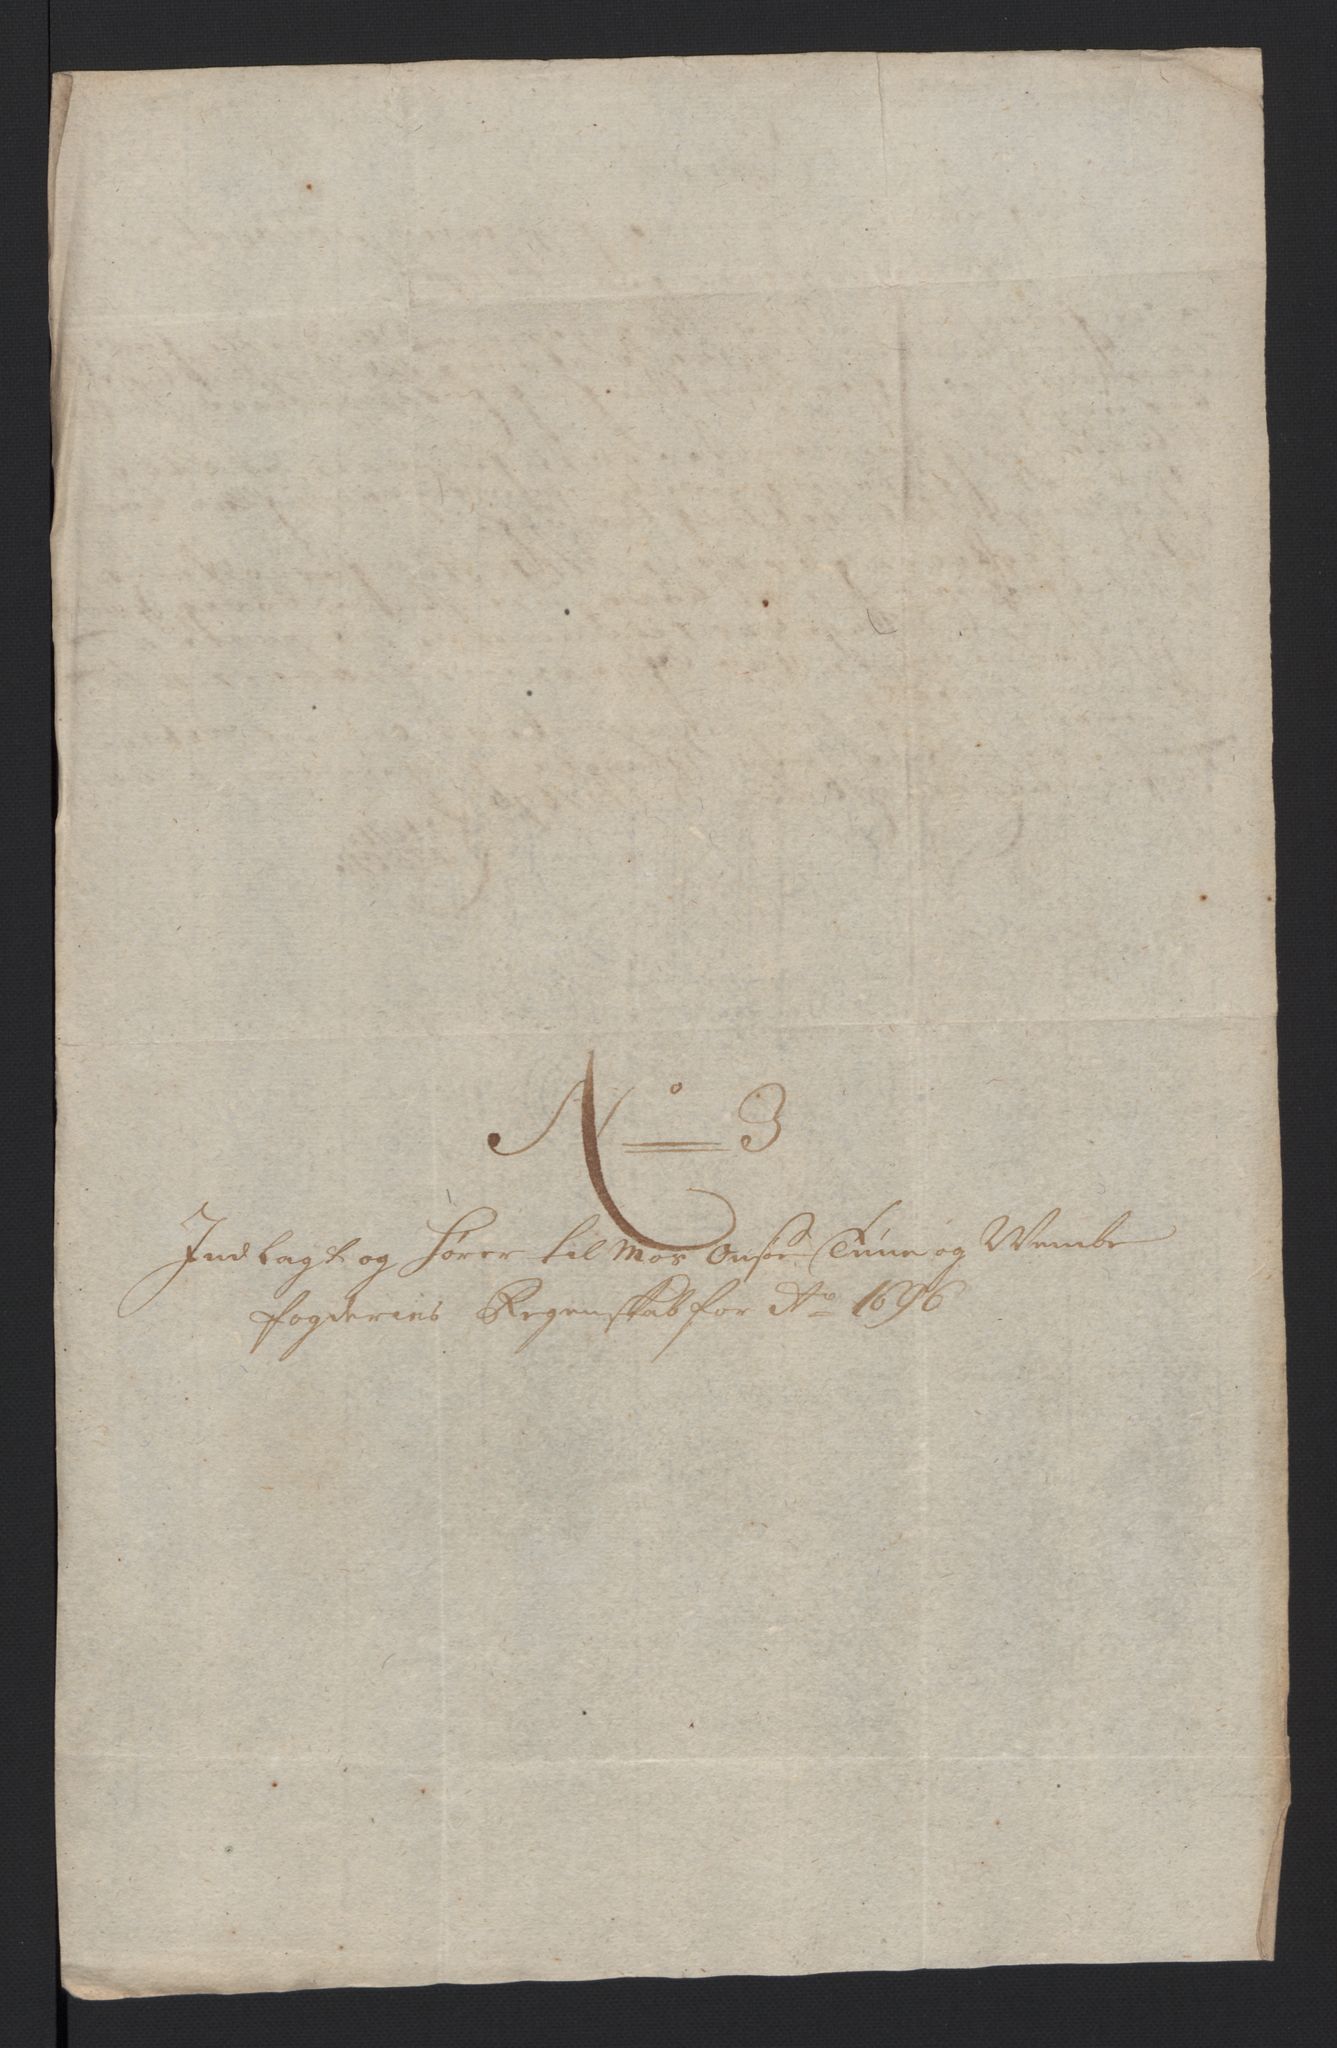 No 3
Indlagt og hører til Mos Onsøe Tune og Wembe
fogderies Regenskab for Ao 1696